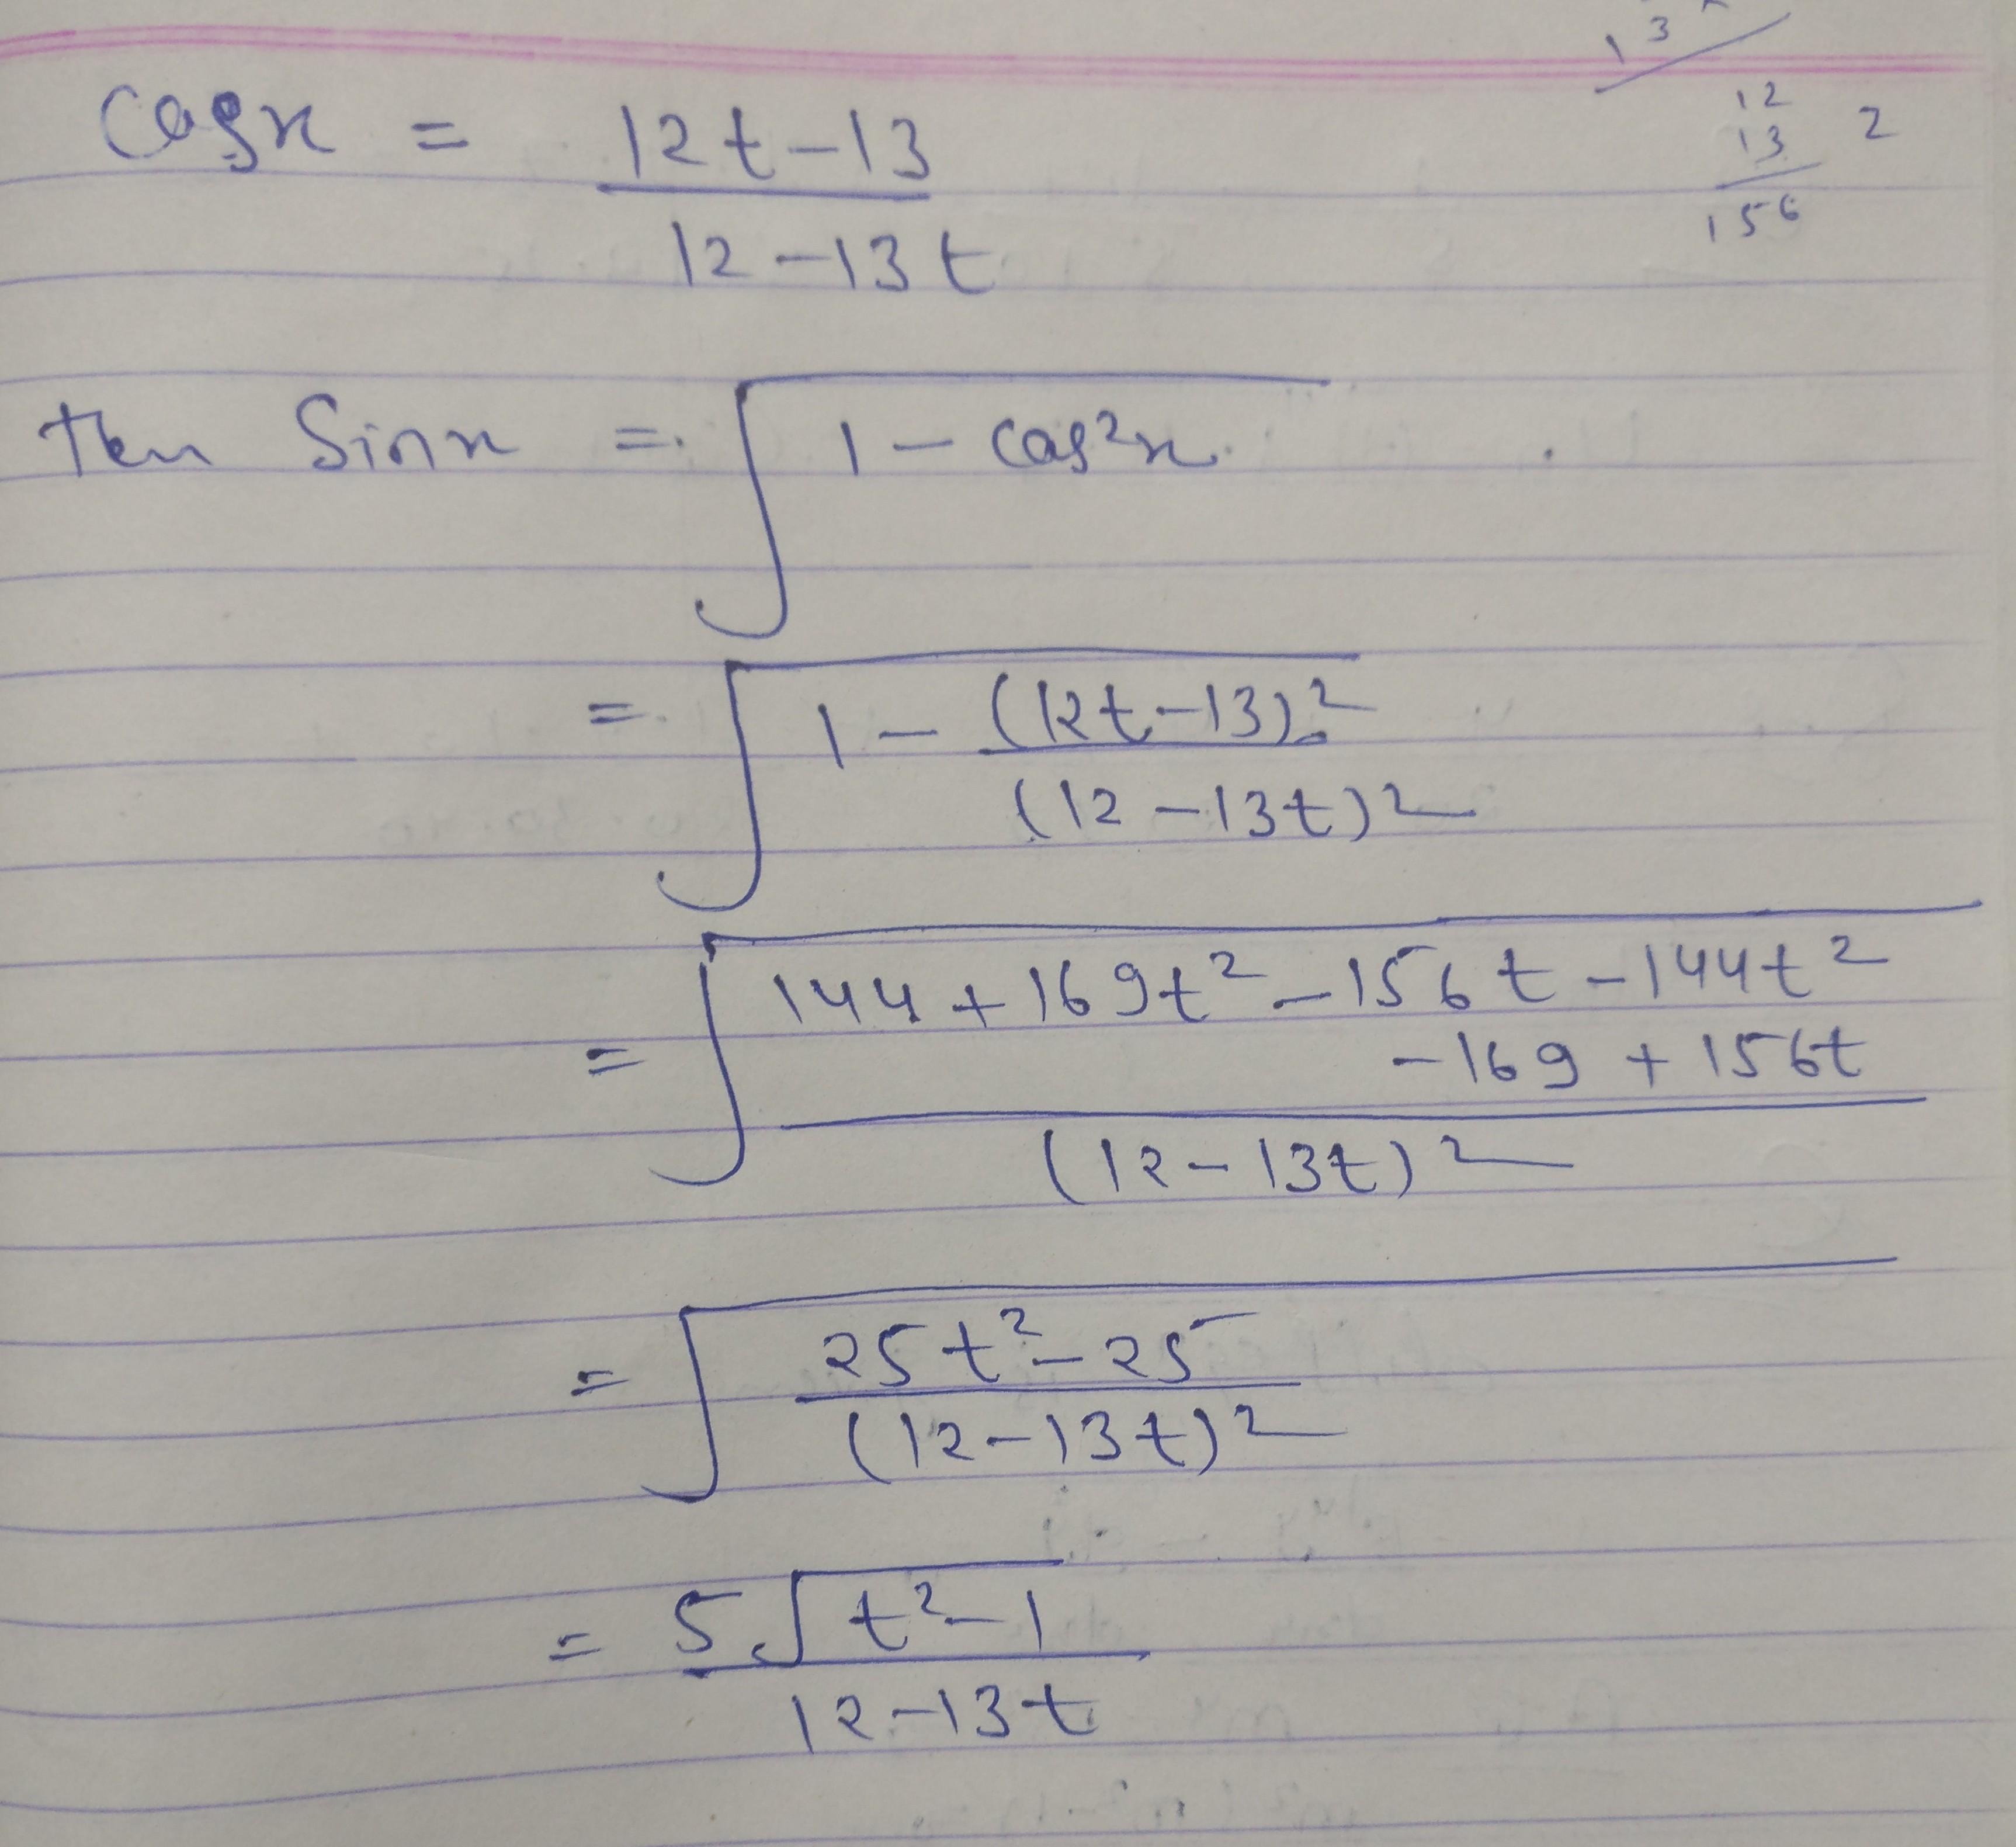 13
12
13 2
156
cosx = 12t-13
12-13t
then Sinx = √1 - cos²x
= √1 - (12t-13)²
(12-13t)²
= √144+169t²-156t-144t²
-169 + 156t
(12-13t)²
= √25t²-25
(12-13t)²
= 5√t²-1
12-13t